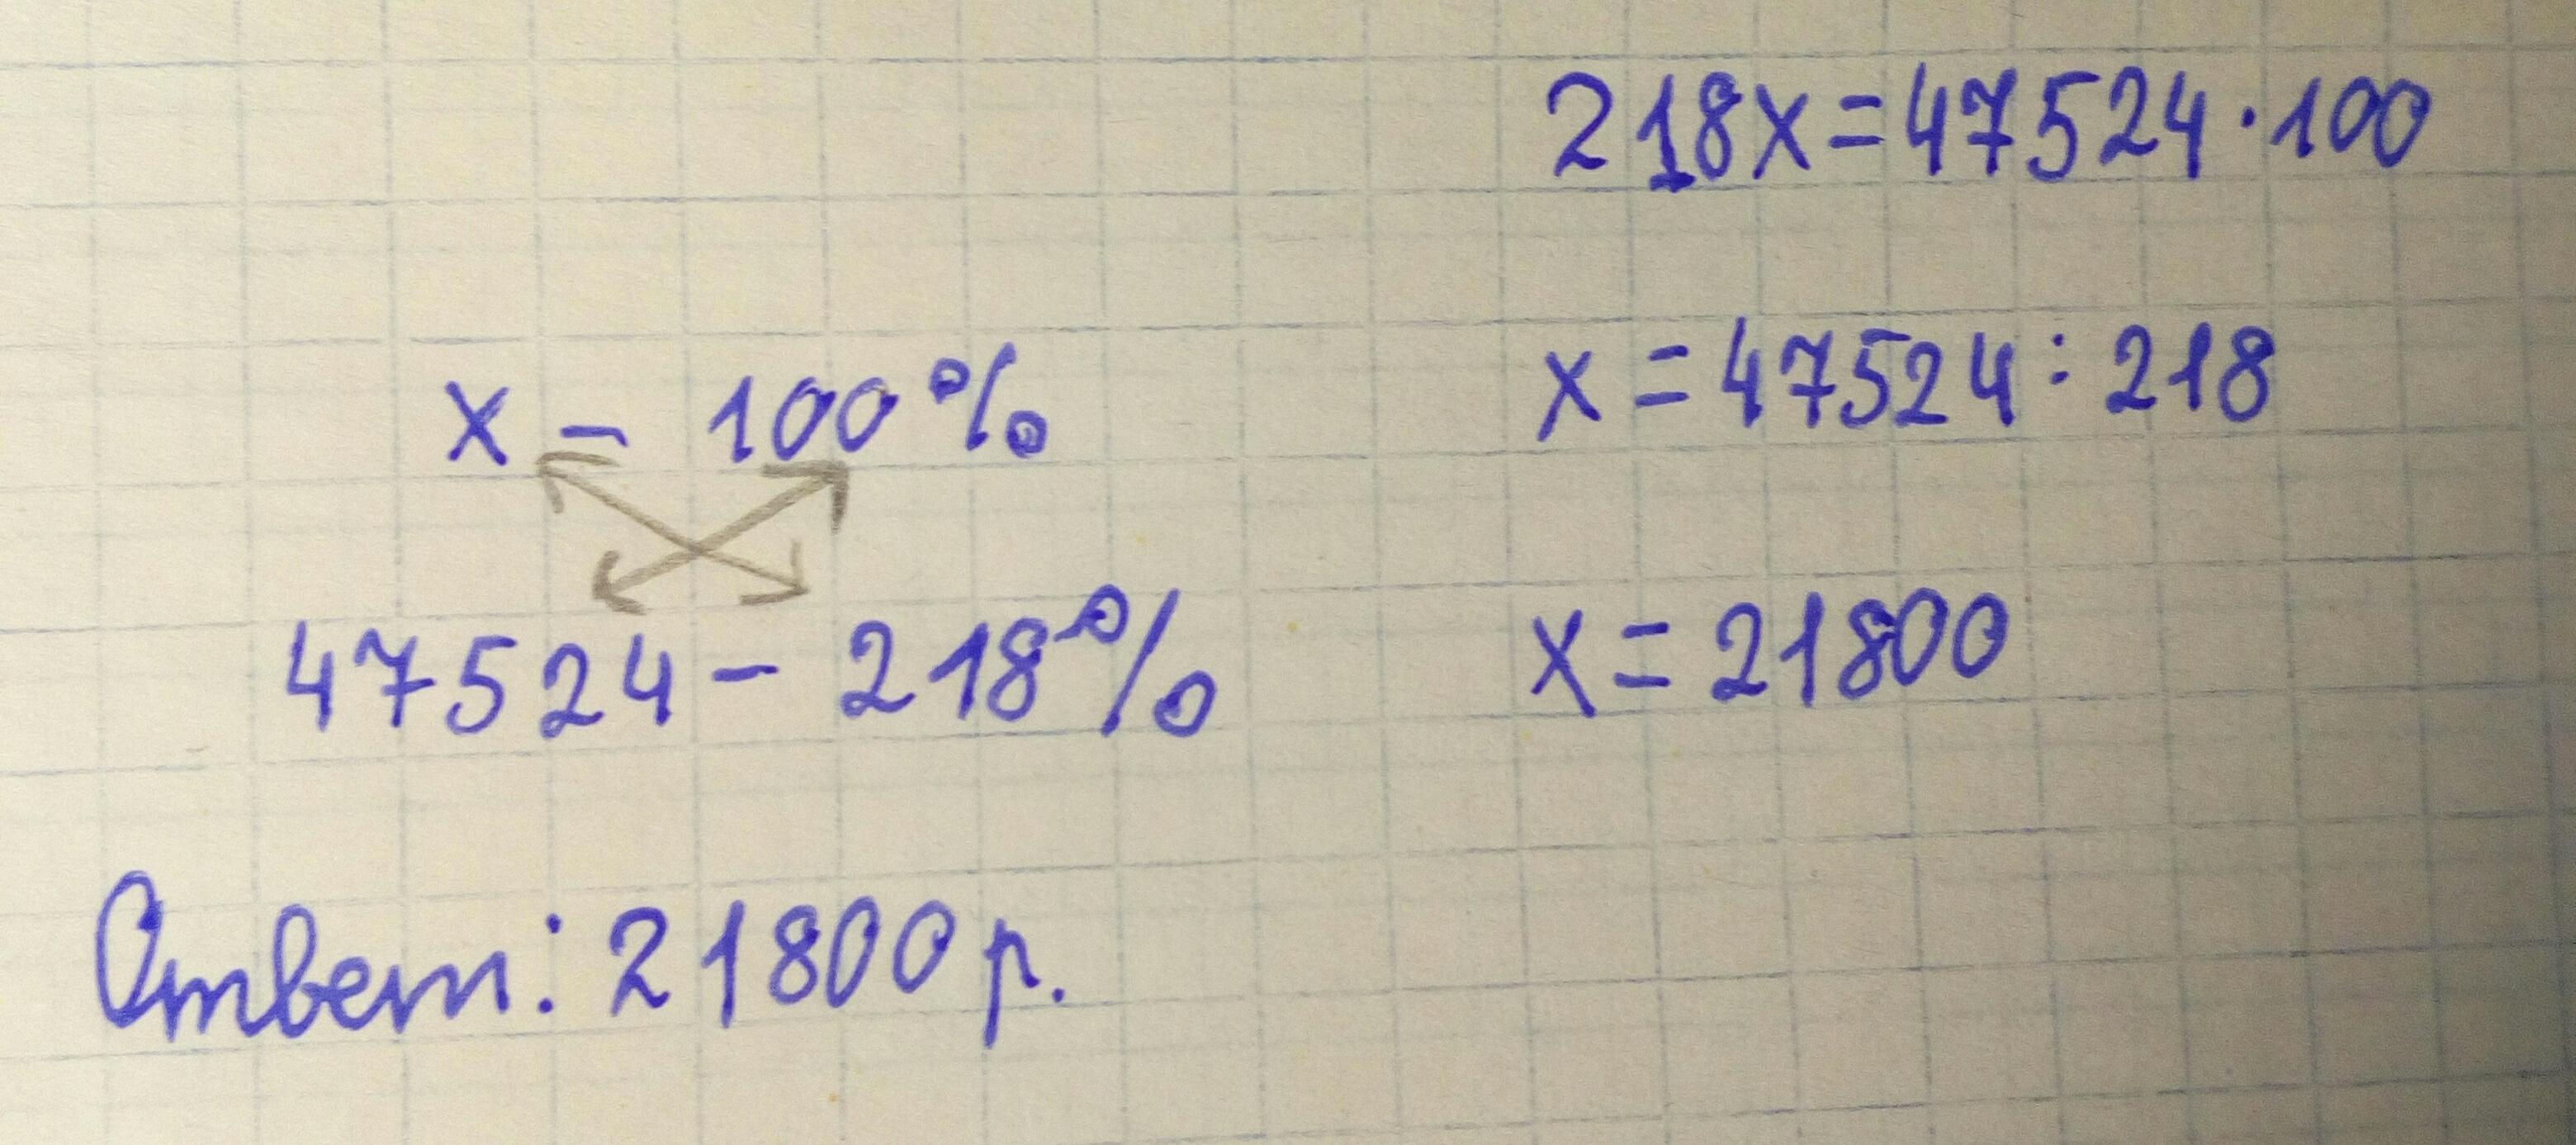 x – 100%
47524 – 218%
218x=47524·100
x = 47524 : 218
x = 21800
Ответ: 21800 р.